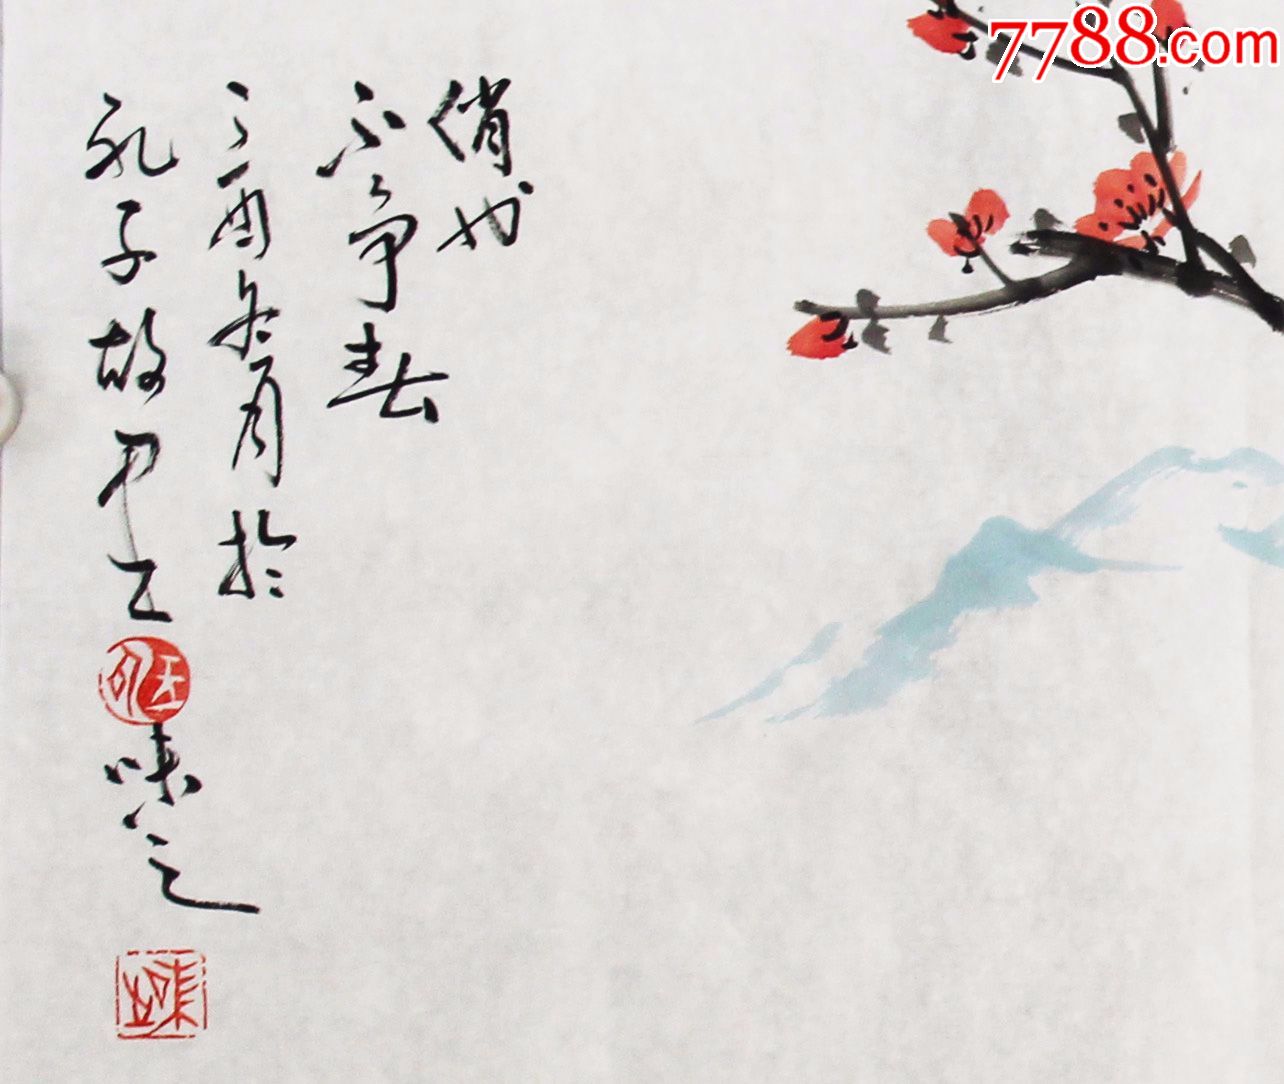 俏也
不争春
丁酉冬月於
孔子故里
味之
7788.com